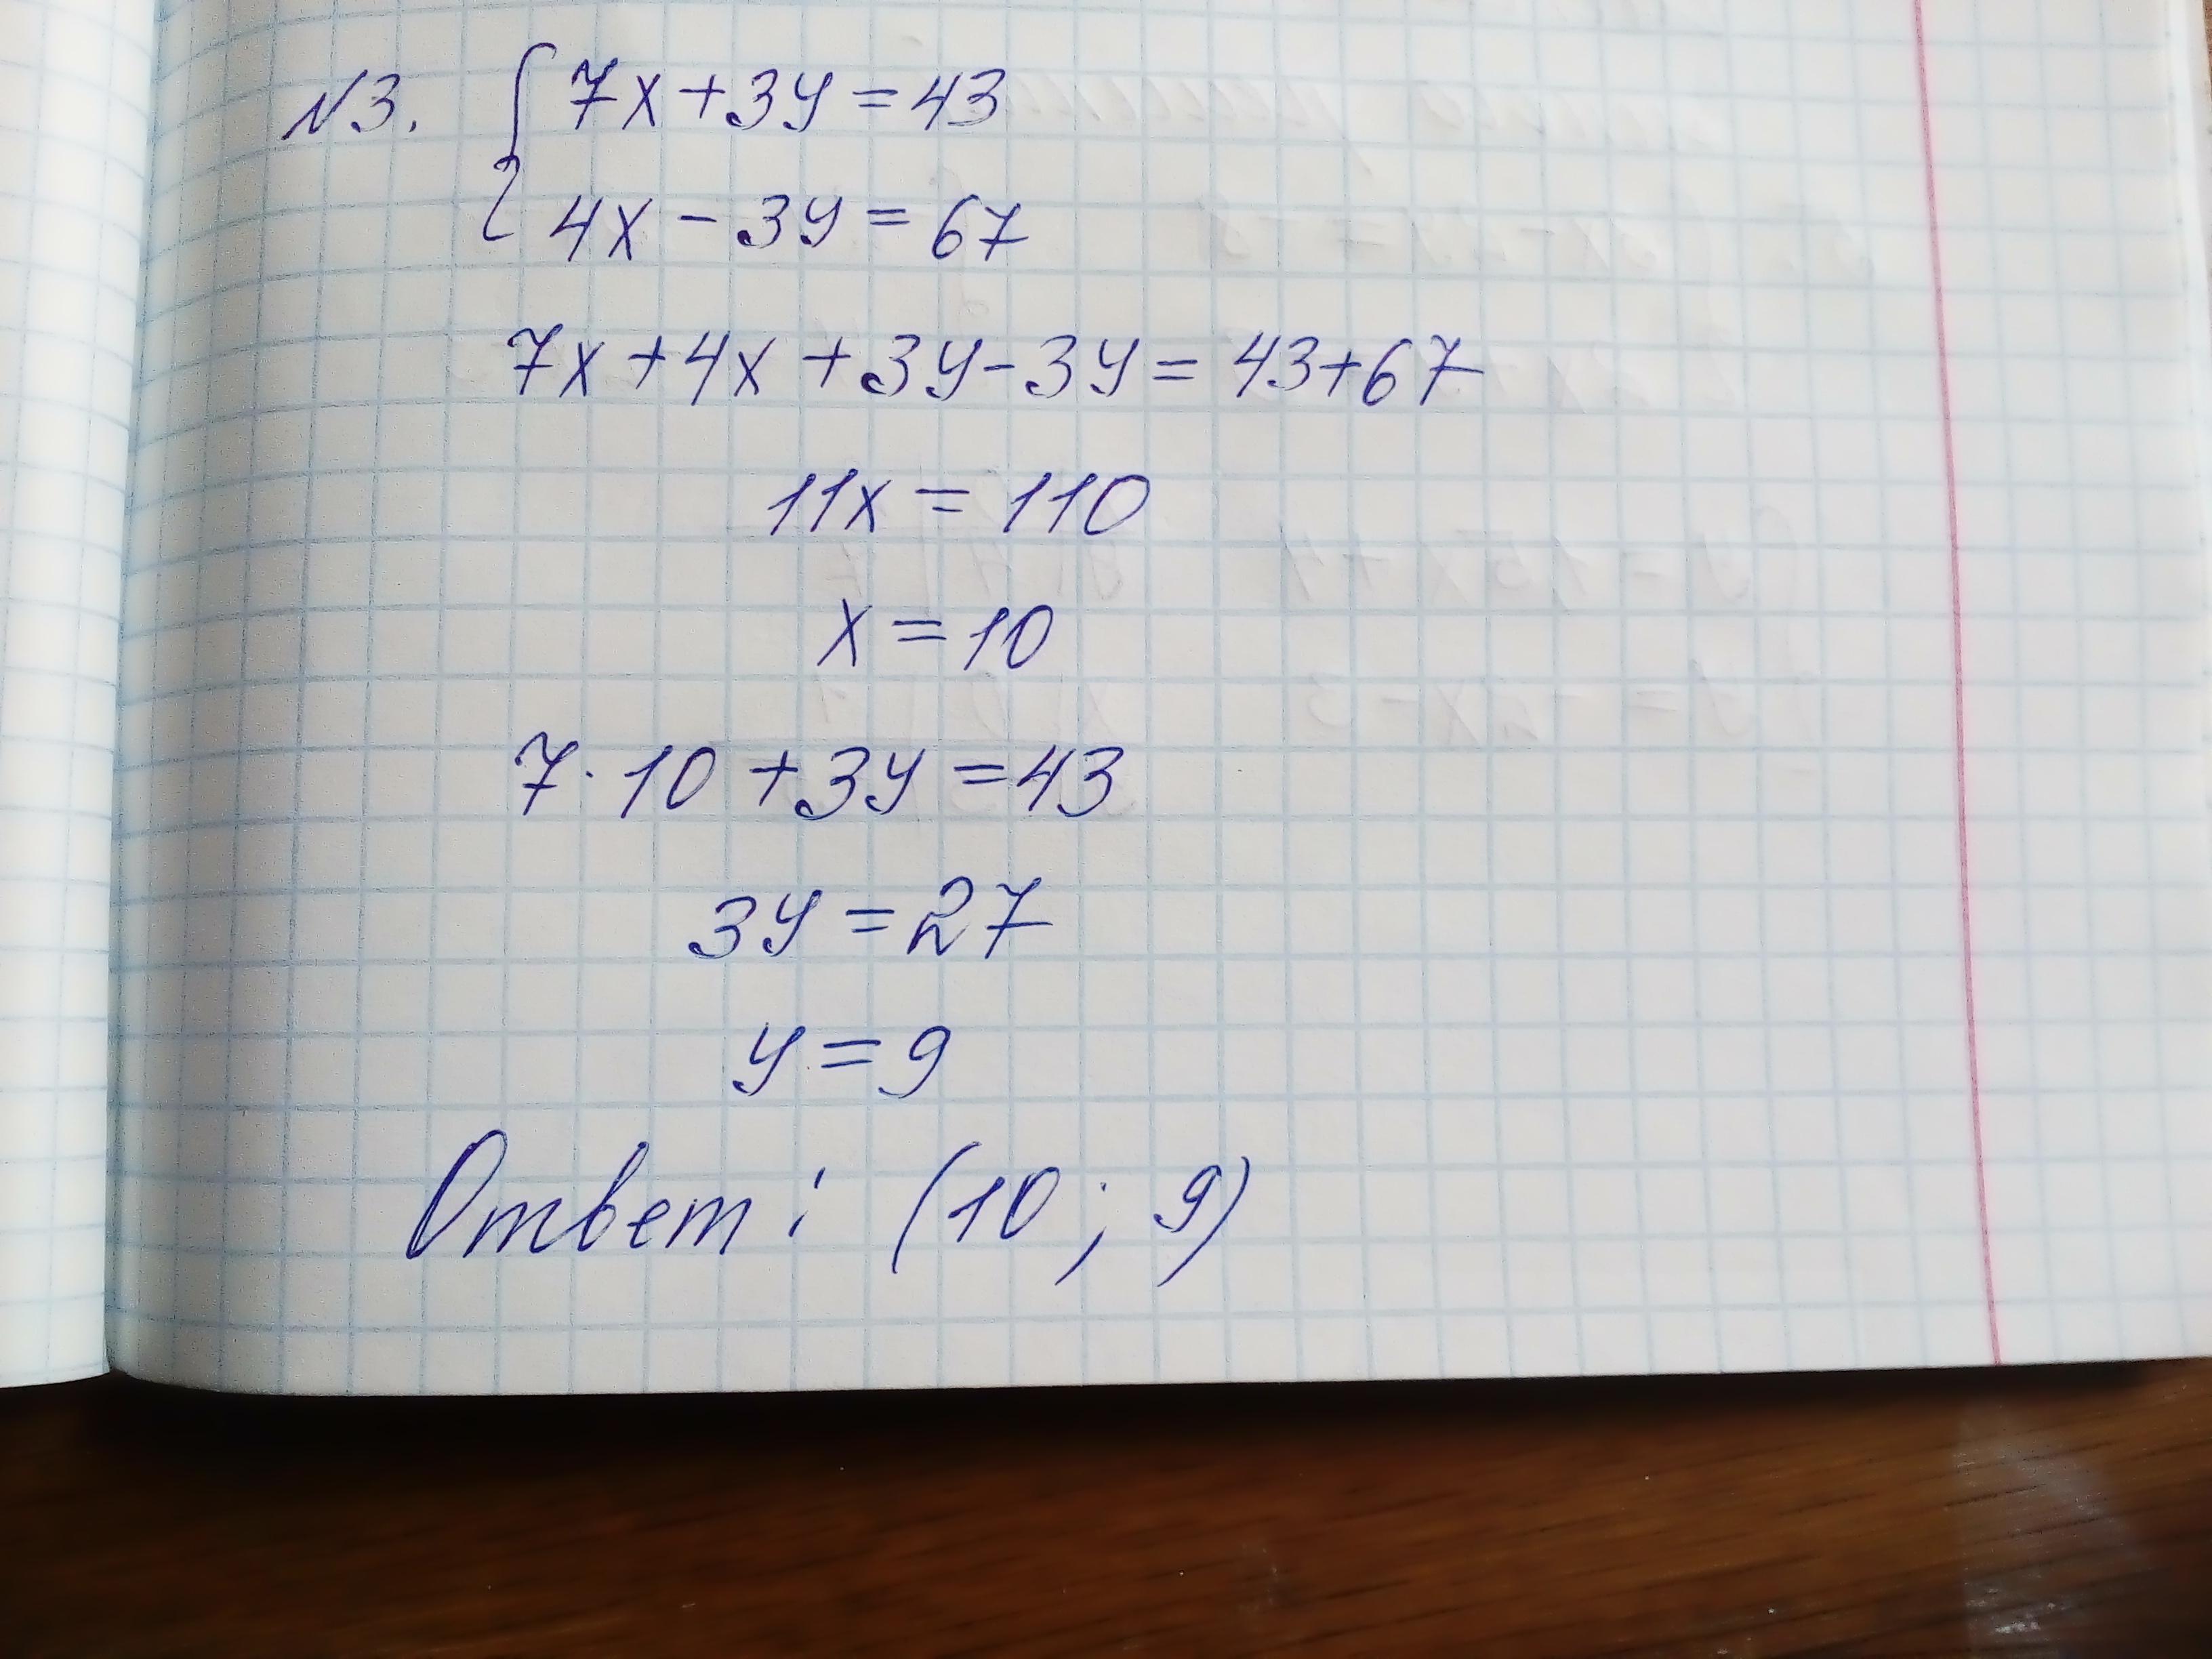 N3. { 7x+3y=43
4x-3y=67
7x+4x+3y-3y=43+67
11x=110
x=10
7·10+3y=43
3y=27
y=9
Ответ: (10; 9)